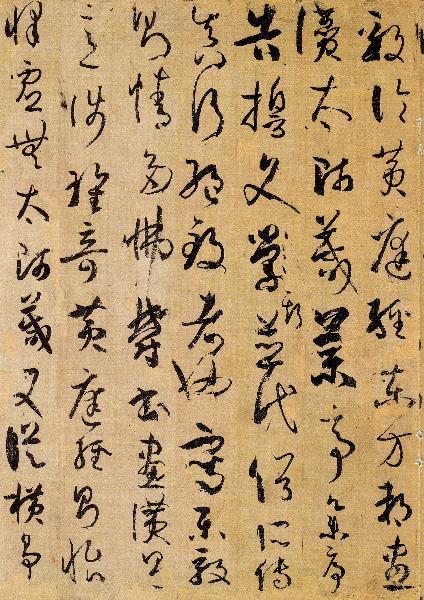 毅論黃庭經東方朔畫
讚太師箴蘭亭集序
告誓文斯並代俗所傳
真行絕致者也寫樂毅
則情多怫鬱書畫讚則
意涉瑰奇黃庭經則怡
懌虛無太師箴又縱橫爭